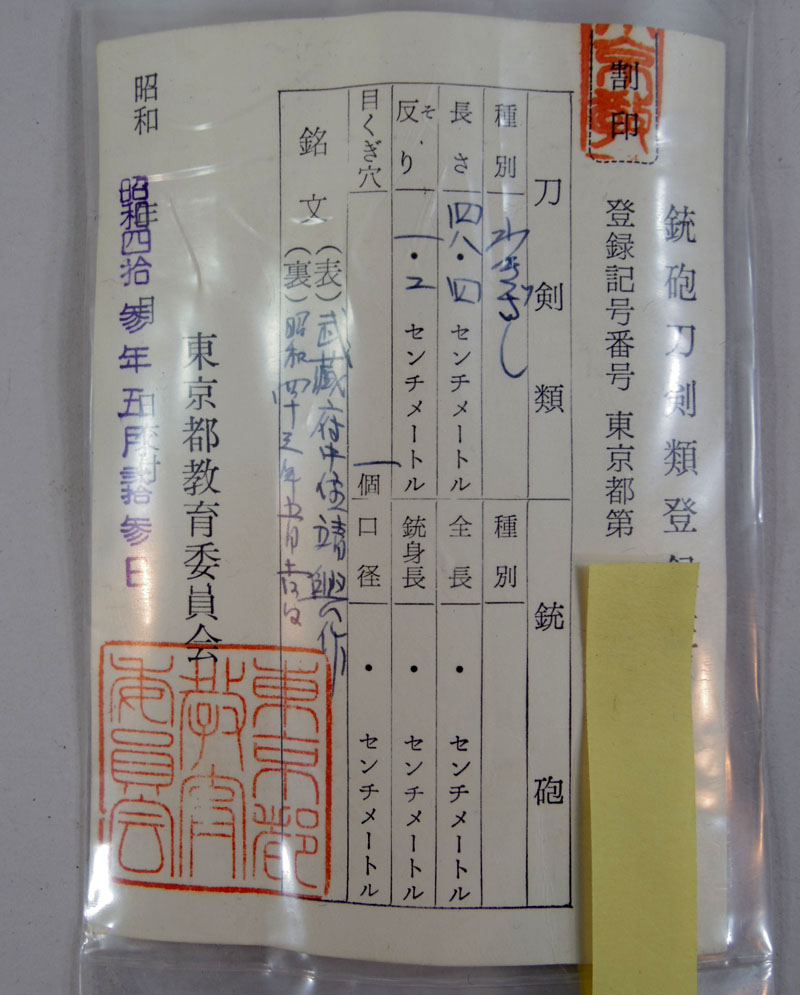 割印
銃砲刀剣類登録
登録記号番号 東京都第
刀剣類
銃砲
種別 わきざし
種別
長さ 四八・四 センチメートル
全長 ・ センチメートル
反り そり 一・二 センチメートル
銃身長 ・ センチメートル
目くぎ穴 一個
口径 ・ センチメートル
銘文 (表) 武蔵府中住靖興作
(裏) 昭和四十三年五月吉日
東京都教育委員会
昭和
昭和四拾参年五月弐拾参日
東京都
教育
委員会